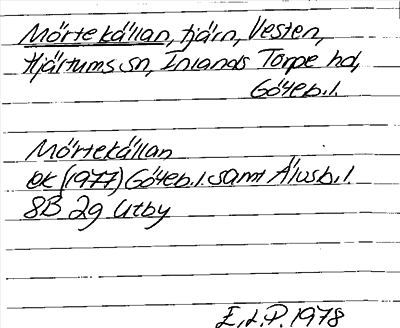 Mörtekällan, tjärn, Vesten,
Hjärtums sn, Inlands Torpe hd,
Göteb.l.
Mörtekällan
EK (1977) Göteb.l. samt Älvsb.l.
8B 2g Utby
E.L.P. 1978